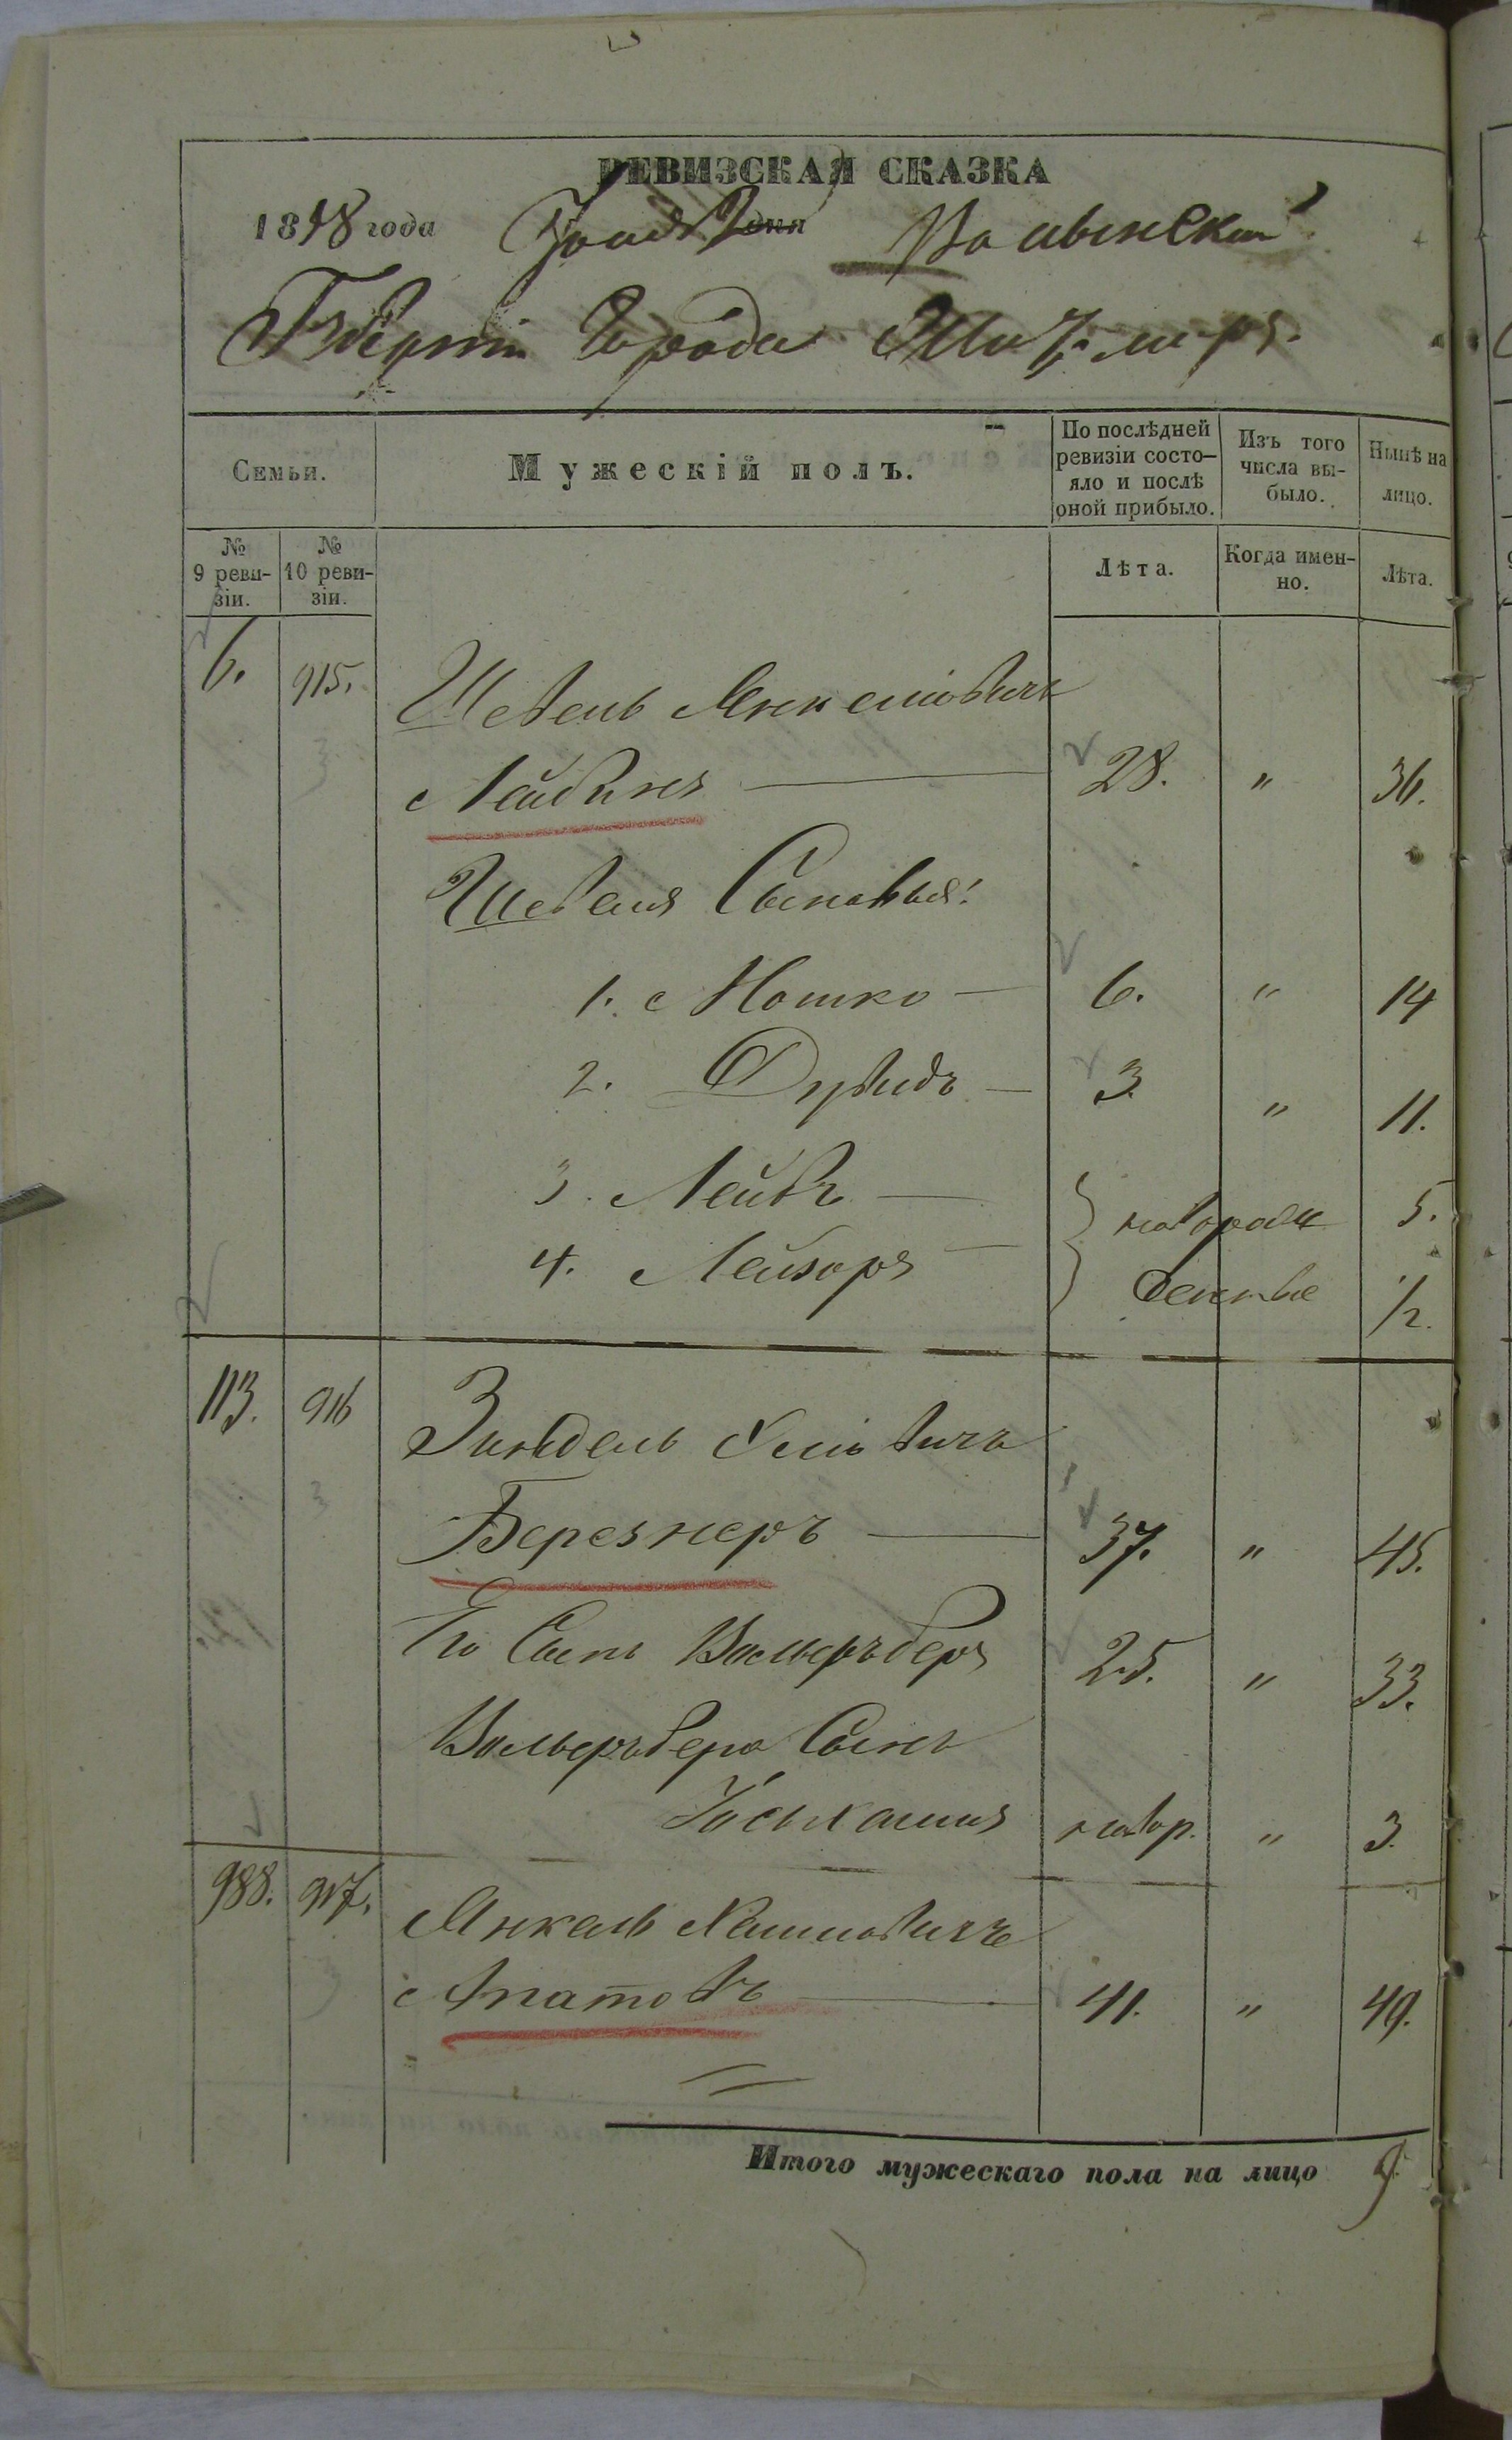 РЕВИЗСКАЯ СКАЗКА
1858 года Волынской
Губерніи Города Житомира
Семьи. Мужескій полъ. По послѣдней ревизіи состояло и послѣ оной прибыло. Изъ того числа выбыло. Нынѣ на лицо.
№ 9 ревизіи. № 10 ревизіи. Лѣта. Когда именно. Лѣта.
6. 915. Шевель Янкелiовичъ
Лейбинъ — 28. " 36.
Шевеля Сыновья:
1. Мошко — 6. " 14
2. Дувидъ — 3 " 11.
3. Лейбъ — новорож 5.
4. Лейзоръ — денные 1/2.
113. 916 Зиндель Хаiовичъ
Березнеръ — 37. " 45.
Его Сынъ Вольфъберъ 25. " 33.
Вольфъбера Сынъ
новор. " 3.
988. 917. Янкель
Апатовъ — 41. " 49.
Итого мужескаго пола на лицо 9